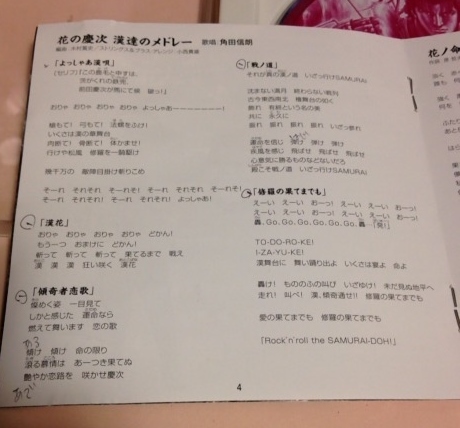 花の慶次 漢達のメドレー 歌唱：角田信朗
「よっしゃあ漢唄」
(セリフ)「この鹿毛と申すは、
茨がくれの鉄兜、
前田慶次が馬にて候 破っ！」
おりゃ おりゃ おりゃ おりゃ よっしゃあーーーーーーー！
植もて！ 弓もて！ 法螺をふけ！
いくさは漢の華舞台
肉断て！ 骨断て！ 体かませ！
行けや松風 修羅を一騎駆け
幾千万の 敵陣目掛け斬りこめ
そーれ それそれ そーれそ！ そーれ それそれ それーそ！
そーれ それそれ！ そーれ！ それそれ！ よっしゃお！
「漢花」
おりゃ おりゃ おりゃ おりゃ どかん！
もう一つ おまけに どかん！
斬って 斬って 斬って 果てるまで 戦え
漢 漢 漢 狂い咲く 漢花
「傾奇者恋歌」
傑めく姿 一目見て
しかと感じた 運命なら
燃えて舞います 恋の歌
かぶ
傾け 傾け 命の限り
滾る慕情は あーつき果てぬ
艶やか恋路を 咲かせ慶次
「戦ノ道」
それが真の漢ノ道 いざっ行けSAMURAI
沈まない満月 終わらない戦列
古今東西南北 檜舞台の如く
掟れ 有終という名の美
共に 永久に
掟れ 掟れ 掟れ 掟れ いざっ掟れ
運命を信じ 弾け 弾け 弾け
疾風を感じ 飛ばせ 飛ばせ 飛ばせ
心意気に勝るものなどないだろ
殿こそ戦ノ道 いざっ行けSAMURAI
「修羅の果てまでも」
えーい えーい おーっ！ えーい えーい おーっ！
えーい えーい おーっ！ えーい えーい おーっ！
轟、Go、Go、Go、Go、Go、轟ー「見！」
TO-DO-RO-KE!
I-ZA-YU-KE!
漢舞台に 舞い踊り出よ いくさは夏よ 命よ
轟け！ もののふの叫び いざゆけ！ 未だ見ぬ地平へ
走れ！ 叫べ！ 漢、傾奇通せ!! 修羅の果てまでも
愛の果てまでも 修羅の果てまでも
「Rock'n'roll the SAMURAI-DOH!」
4
花ノ命